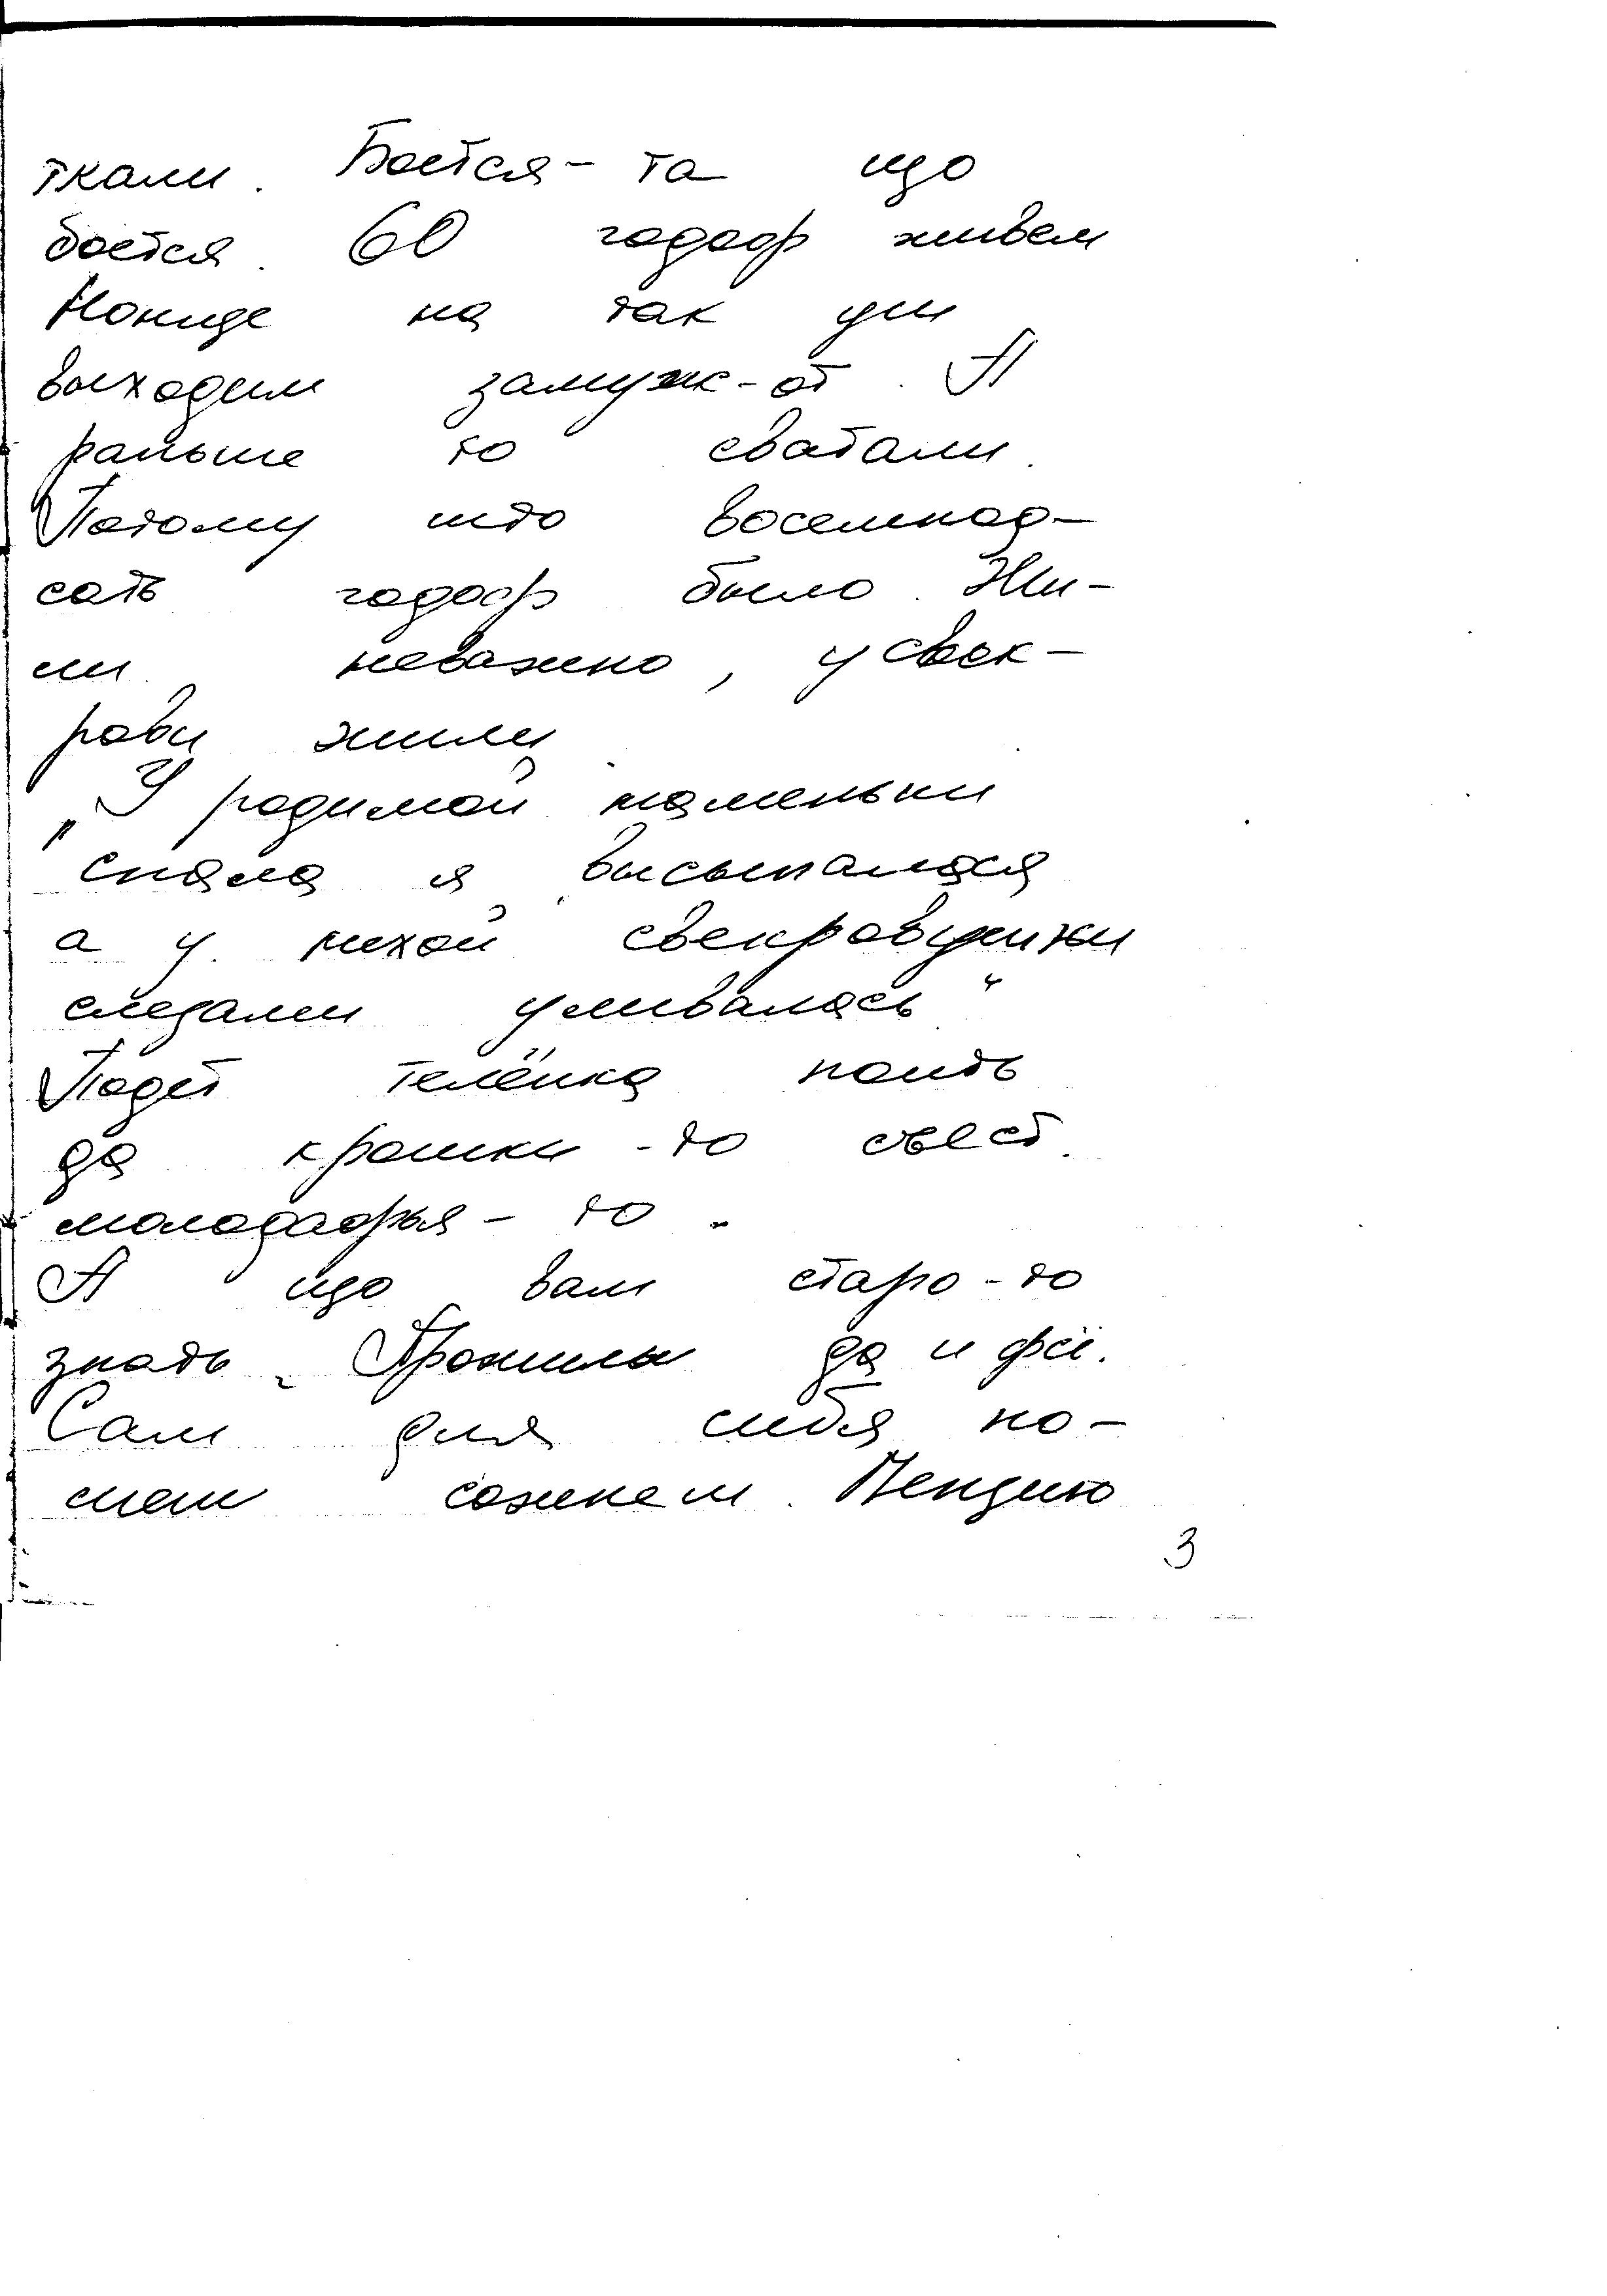 ткали. Боется-та що
боется. 60 годоф живем
Нонице на так уш
выходим замуж-от. А
раньше то сватали.
Потому што восемнад-
сать годоф было. Жи-
ли неважно, у свек-
рови жили.
„У родимой маменьки
спала я высыпалася
а у лихой свекровушки
слезами умывалась“
Подет телёнка поить
да крошки-то съест.
молодафья-то.
А що вам старо-то
знать. Прожили да и фсё.
Сам для себя по-
лет сожнем. Пендию
3